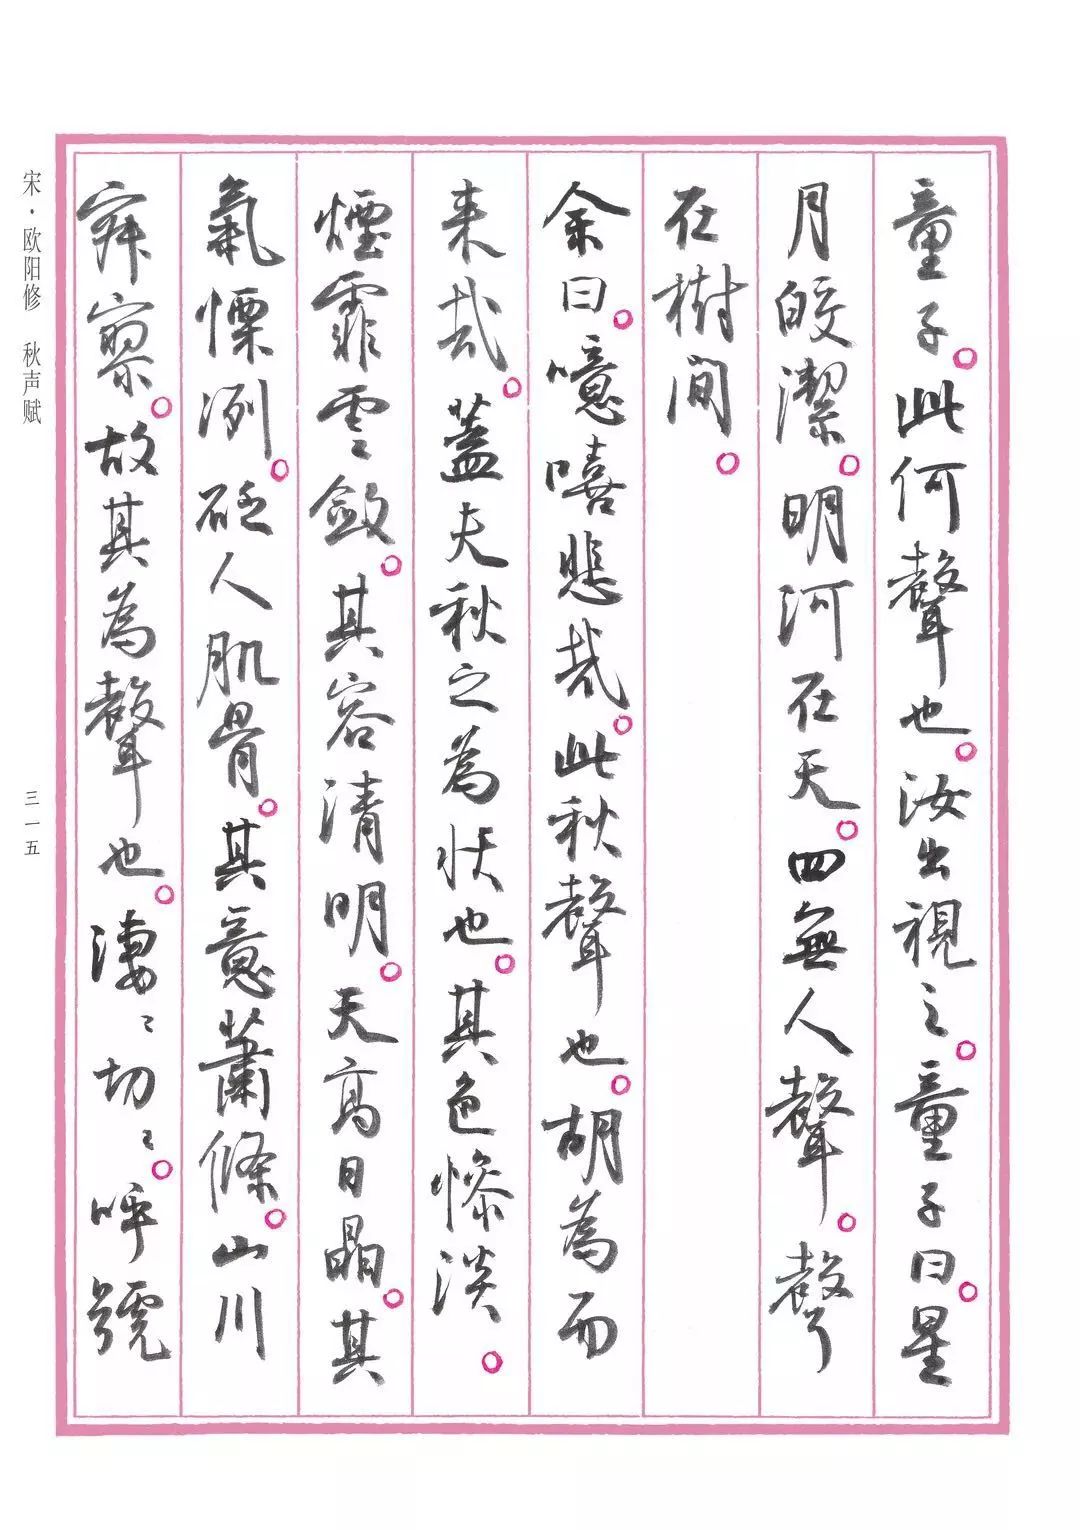 童子。此何聲也。汝出視之。童子曰。星
月皎潔。明河在天。四無人聲。聲
在樹間。
余曰。噫嘻悲哉。此秋聲也。胡為而
来哉。蓋夫秋之為状也。其色慘淡。
煙霏雲斂。其容清明。天高日晶。其
氣慄冽。砭人肌骨。其意蕭條。山川
寂寥。故其為聲也。淒〻切〻。呼號
宋·欧阳修 秋声赋
三一五